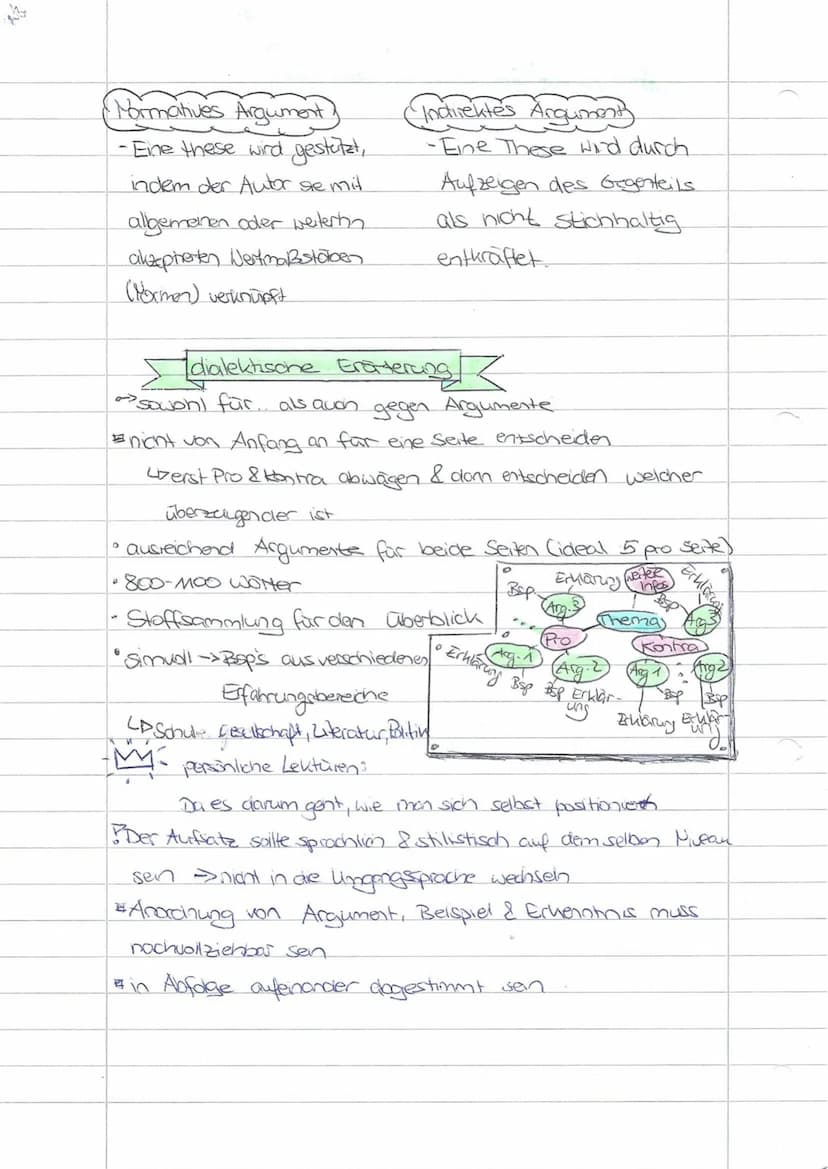 Normatives Argument
- Eine these wird gestützt,
indem der Autor sie mit
allgemeinen oder weiterhin
akzeptierten Wertmaßstäben
(Normen) verknüpft
Indirektes Argument
- Eine These wird durch
Aufzeigen des Gegenteils
als nicht stichhaltig
entkräftet.
dialektische Erörterung
→ sowohl für.. als auch gegen Argumente
nicht von Anfang an für eine Seite entscheiden
↳ erst Pro & Kontra abwägen & dann entscheiden welcher
überzeugender ist
• ausreichend Argumente für beide Seiten (ideal 5 pro Seite)
• 800-1100 Wörter
• Stoffsammlung für den Überblick
• sinnvoll → Bsp's aus verschiedenen
Erfahrungsbereiche
↳ Schule Gesellschaft, Literatur, Politik
persönliche Lektüren:
Da es darum geht, wie man sich selbst positioniert
! Der Aufsatz sollte sprachlich & stilistisch auf dem selben Niveau
sein → nicht in die Umgangssprache wechseln
Anordnung von Argument, Beispiel & Erkenntnis muss
nachvollziehbar sein
in Abfolge aufeinander abgestimmt sein
Thema
weitere Infos
Pro
Arg. 3
Bsp.
Erklärung
Arg. 1
Erklärung
Bsp
Arg. 2
Bsp
Erklär-
ung
Kontra
Arg 1
Erklärung
Bsp
Arg 2
Bsp
Erklär-
ung
Arg 3
Bsp
Erklärung